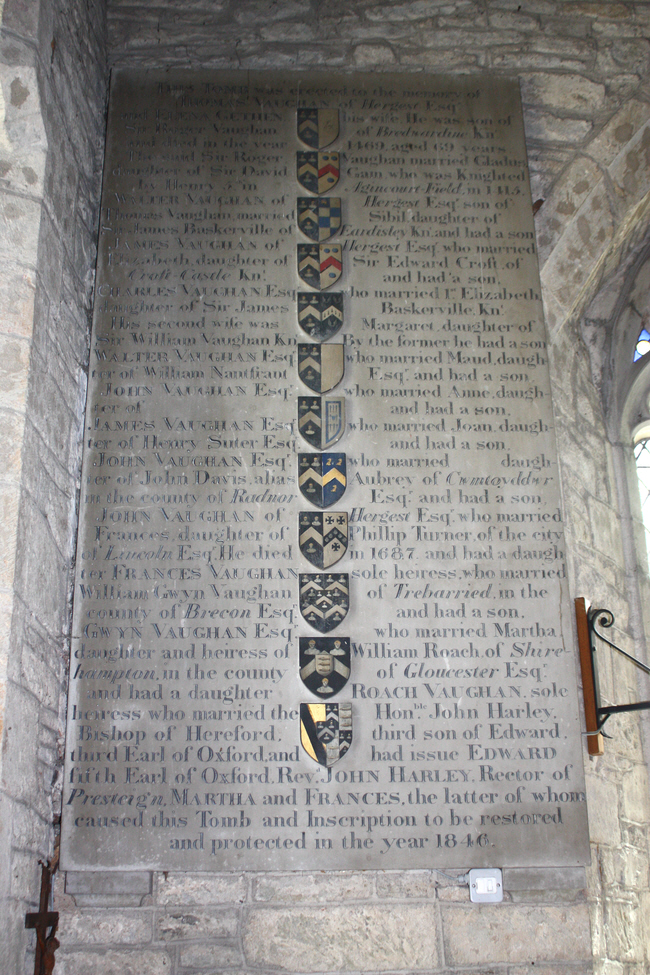 THIS TOMB was erected to the memory of
THOMAS VAUGHAN of Hergest Esqr.
and ELLEN GETHEN his wife. He was son of
Sir Roger Vaughan of Bredwardine Knt.
and died in the year 1469, aged 69 years.
The said Sir Roger Vaughan married Gladus,
daughter of Sir David Gam who was Knighted
by Henry 5th in Agincourt Field, in 1415.
WALTER VAUGHAN of Hergest Esqr. son of
Thomas Vaughan, married Sibil, daughter of
James Baskerville of Eardisley Knt. and had a son
JAMES VAUGHAN of Hergest Esqr. who married
Elizabeth, daughter of Sir Edward Croft, of
Croft Castle Knt. and had a son,
CHARLES VAUGHAN Esqr. who married 1st Elizabeth,
daughter of Sir James Baskerville, Knt.
His second wife was Margaret, daughter of
Sir William Vaughan Knt. By the former he had a son
WALTER VAUGHAN Esqr. who married Maud, daugh-
ter of William Nantfiant Esqr. and had a son,
JOHN VAUGHAN Esqr. who married Anne, daugh-
ter of and had a son,
JAMES VAUGHAN Esqr. who married Joan, daugh-
ter of Henry Suter Esqr. and had a son,
JOHN VAUGHAN Esqr. who married daugh-
ter of John Davis, alias Aubrey of Cwmtoyddwr
in the county of Radnor Esqr. and had a son,
JOHN VAUGHAN of Hergest Esqr. who married
Frances, daughter of Phillip Turner, of the city
of Lincoln Esqr. He died in 1687, and had a daugh-
ter FRANCES VAUGHAN sole heiress, who married
William Gwyn Vaughan of Trebarried, in the
county of Brecon Esqr. and had a son,
GWYN VAUGHAN Esqr. who married Martha,
daughter and heiress of William Roach, of Shire-
hampton, in the county of Gloucester Esqr.
and had a daughter ROACH VAUGHAN, sole
heiress who married the Honble. John Harley,
Bishop of Hereford, third son of Edward,
third Earl of Oxford, and had issue EDWARD
fifth Earl of Oxford, Rev. JOHN HARLEY, Rector of
Presteign, MARTHA and FRANCES, the latter of whom
caused this Tomb and Inscription to be restored
and protected in the year 1846.